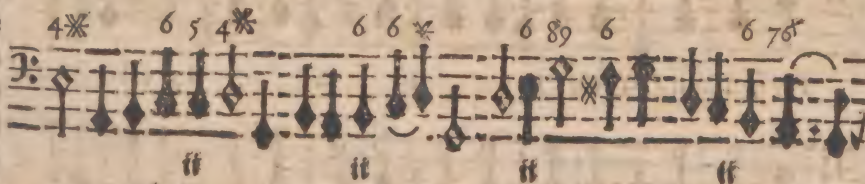 4※ 6 5 4※ 6 6 ※ 6 89 6 6 76
tt tt tt tt